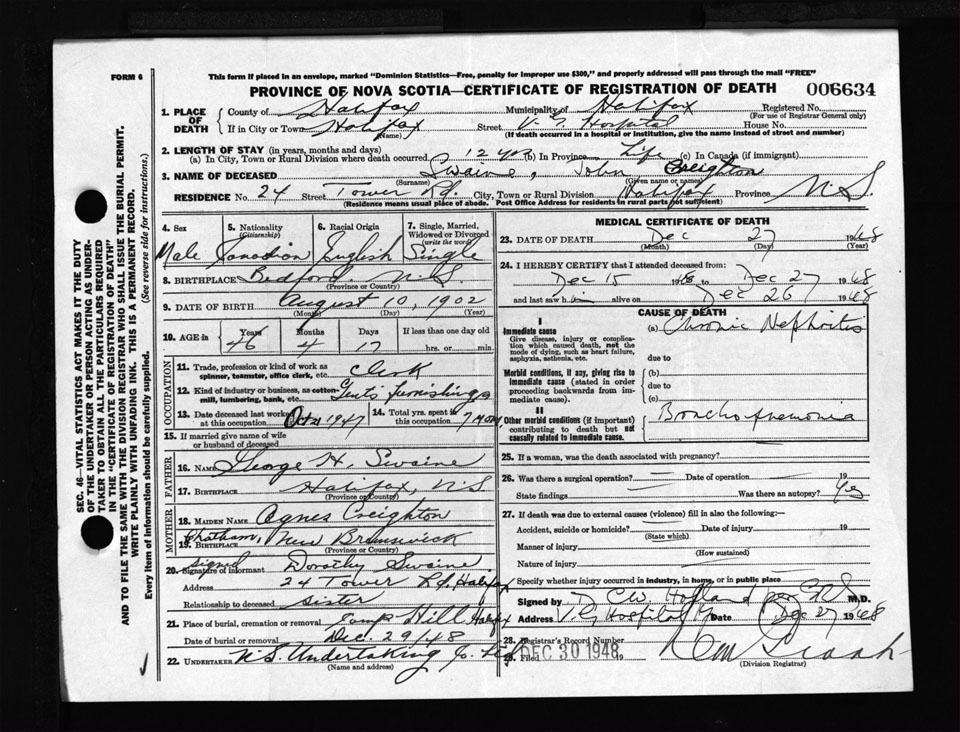 This form if placed in an envelope, marked "Dominion Statistics—Free, penalty for improper use $300," and properly addressed will pass through the mail "FREE"
FORM 6
PROVINCE OF NOVA SCOTIA—CERTIFICATE OF REGISTRATION OF DEATH 006634
1. PLACE OF DEATH County of Halifax Municipality of Halifax Registered No.
(For use of Registrar General only)
If in City or Town Halifax Street V. G. Hospital House No.
(Name) (If death occurred in a hospital or institution, give the name instead of street and number)
2. LENGTH OF STAY (in years, months and days)
(a) In City, Town or Rural Division where death occurred 12 yr (b) In Province Life (c) In Canada (if immigrant)
3. NAME OF DECEASED Swaine, John Creighton
(Surname) (Given name or names)
RESIDENCE No. 24 Street Tower Rd. City, Town or Rural Division Halifax Province N.S.
(Residence means usual place of abode. Post Office Address for residents in rural parts not sufficient)
4. Sex 5. Nationality (Citizenship) 6. Racial Origin 7. Single, Married, Widowed or Divorced (write the word)
Male Canadian English Single
8. BIRTHPLACE Bedford N.S.
(Province or Country)
9. DATE OF BIRTH August 10, 1902
(Month) (Day) (Year)
10. AGE in Years Months Days If less than one day old
46 4 17 hrs. or min.
OCCUPATION
11. Trade, profession or kind of work as spinner, teamster, office clerk, etc. Clerk
12. Kind of industry or business, as cotton-mill, lumbering, bank, etc. Gents furnishings
13. Date deceased last worked at this occupation Oct 21 1947 14. Total yrs. spent in this occupation
15. If married give name of wife or husband of deceased
FATHER
16. NAME George H. Swaine
17. BIRTHPLACE Halifax, N.S.
(Province or Country)
MOTHER
18. MAIDEN NAME Agnes Creighton
19. BIRTHPLACE Chatham, New Brunswick
(Province or Country)
20. Signature of informant signed Dorothy Swaine
Address 24 Tower Rd, Halifax
Relationship to deceased sister
21. Place of burial, cremation or removal Camp Hill Halifax
Date of burial or removal Dec. 29/48
22. UNDERTAKER N.S. Undertaking Co. Ltd
(Name and address)
MEDICAL CERTIFICATE OF DEATH
23. DATE OF DEATH Dec 27 1948
(Month) (Day) (Year)
24. I HEREBY CERTIFY that I attended deceased from:
Dec 15 1948 to Dec 27 1948
and last saw him alive on Dec 26 1948
CAUSE OF DEATH
I
Immediate cause (a) Chronic Nephritis
Give disease, injury or complication which caused death, not the mode of dying, such as heart failure, asphyxia, asthenia, etc.
due to
Morbid conditions, if any, giving rise to immediate cause (stated in order proceeding backwards from immediate cause).
(b)
due to
(c)
II
Other morbid conditions (if important) contributing to death but not causally related to immediate cause. Bronchopneumonia
25. If a woman, was the death associated with pregnancy?
26. Was there a surgical operation? Date of operation 19
State findings Was there an autopsy? Yes
27. If death was due to external causes (violence) fill in also the following:—
Accident, suicide or homicide? Date of injury 19
(State which)
Manner of injury
(How sustained)
Nature of injury
Specify whether injury occurred in industry, in home, or in public place
Signed by D C.W. Holland per M.D.
Address V. G Hospital Date Dec 27 1948
28. Registrar's Record Number
29. Filed DEC 30 1948 19
(Division Registrar)
SEC. 46—VITAL STATISTICS ACT MAKES IT THE DUTY
OF THE UNDERTAKER OR PERSON ACTING AS UNDER-
TAKER TO OBTAIN ALL THE PARTICULARS REQUIRED
IN THE "CERTIFICATE OF REGISTRATION OF DEATH"
AND TO FILE THE SAME WITH THE DIVISION REGISTRAR WHO SHALL ISSUE THE BURIAL PERMIT.
WRITE PLAINLY WITH UNFADING INK. THIS IS A PERMANENT RECORD.
Every item of information should be carefully supplied. (See reverse side for instructions.)